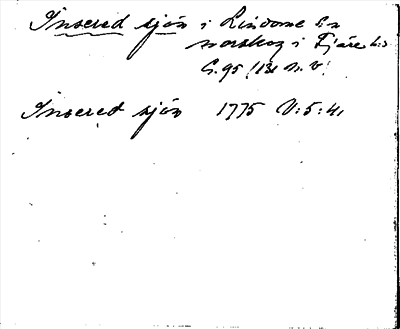 Insered sjön i Lindome sn
norskog i Fjäre hd
S. 95 /131 n. v!
Insered sjön 1775 V:5:4,